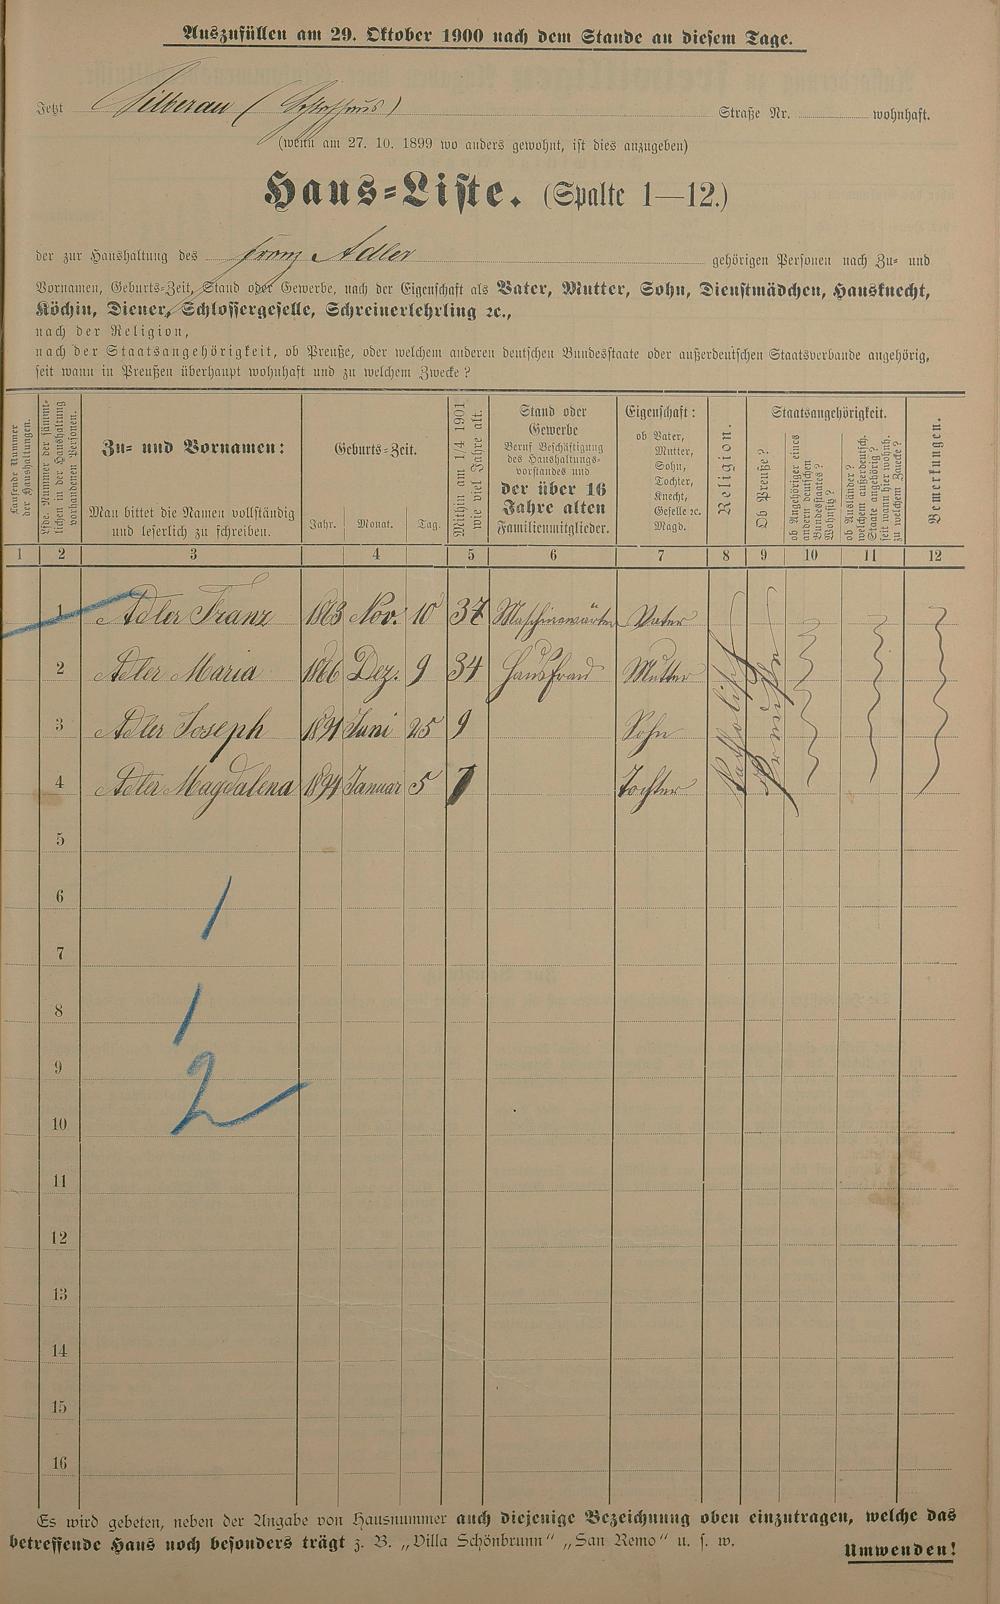 Auszufüllen am 29. Oktober 1900 nach dem Stande an diesem Tage.
Jetzt Silberau (Schlafhaus) Straße Nr. wohnhaft.
(wenn am 27. 10. 1899 wo anders gewohnt, ist dies anzugeben)
Haus-Liste. (Spalte 1—12.)
der zur Haushaltung des Franz Adler gehörigen Personen nach Zu- und
Vornamen, Geburts-Zeit, Stand oder Gewerbe, nach der Eigenschaft als Vater, Mutter, Sohn, Dienstmädchen, Hausknecht,
Köchin, Diener, Schlossergeselle, Schreinerlehrling ꝛc.,
nach der Religion,
nach der Staatsangehörigkeit, ob Preuße, oder welchem anderen deutschen Bundesstaate oder außerdeutschen Staatsverbande angehörig,
seit wann in Preußen überhaupt wohnhaft und zu welchem Zwecke?
Laufende Nummer
der Haushaltungen.
Lfde. Nummer der sämmt-
lichen in der Haushaltung
vorhandenen Personen.
Zu- und Vornamen:
Man bittet die Namen vollständig
und leserlich zu schreiben.
Geburts-Zeit.
Jahr. Monat. Tag.
Mithin am 1/4 1901
wie viel Jahre alt.
Stand oder
Gewerbe
Beruf Beschäftigung
des Haushaltungs-
vorstandes und
der über 16
Jahre alten
Familienmitglieder.
Eigenschaft:
ob Vater,
Mutter,
Sohn,
Tochter,
Knecht,
Geselle ꝛc.
Magd.
Religion.
Staatsangehörigkeit.
Ob Preuße?
ob Angehöriger eines
andern deutschen
Bundesstaates?
Wohnsitz?
ob Ausländer?
welchem außerdeutsch.
Staate angehörig?
seit wann hier wohnh.
zu welchem Zwecke?
Bemerkungen.
1 2 3 4 5 6 7 8 9 10 11 12
1 Adler Franz 1863 Nov. 10 37 Maschinewärter Vater
2 Adler Maria 1866 Dez. 9 34 Hausfrau Mutter
3 Adler Joseph 1891 Juni 25 9 Sohn
4 Adler Magdalena 1894 Januar 5 7 Tochter
Katholisch
Preuße
5
6
1
7
8
1
9
2
10
11
12
13
14
15
16
Es wird gebeten, neben der Angabe von Hausnummer auch diejenige Bezeichnung oben einzutragen, welche das
betreffende Haus noch besonders trägt z. B. „Villa Schönbrunn“ „San Remo“ u. s. w.
Umwenden!